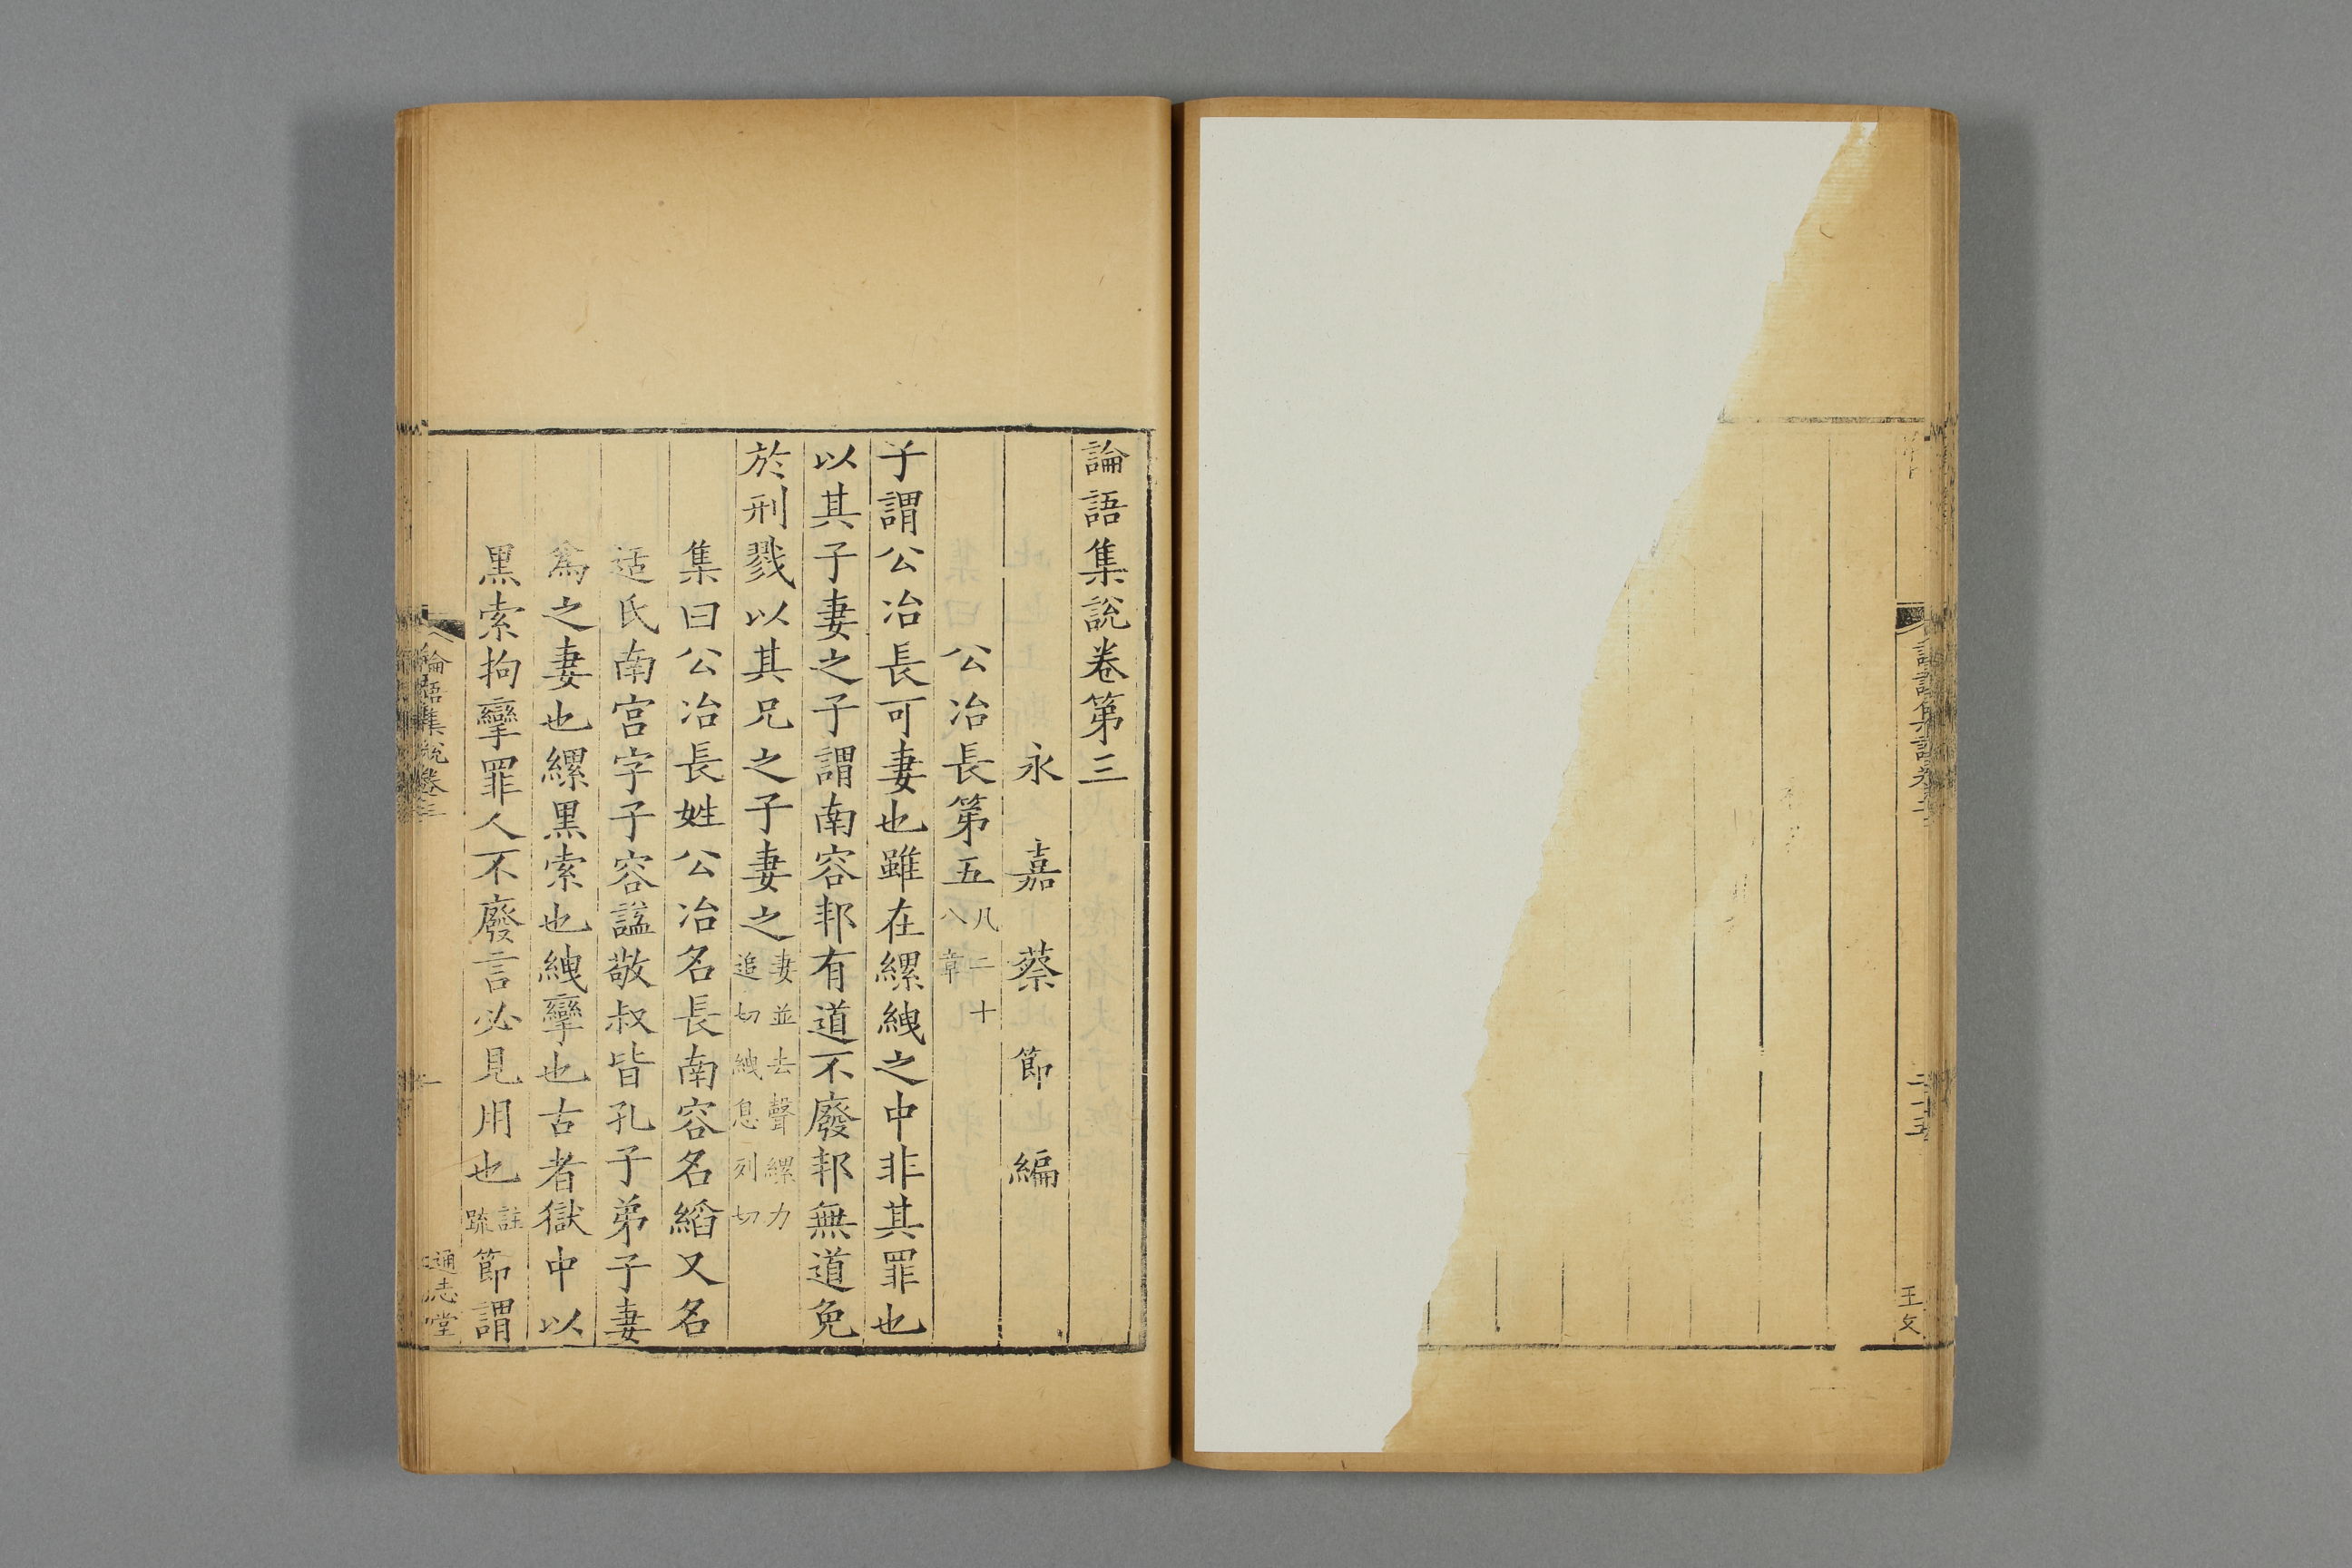 王文
論語集說卷第三
永嘉蔡節編
公冶長第五凡二十八章
子謂公冶長可妻也雖在縲絏之中非其罪也
以其子妻之子謂南容邦有道不廢邦無道免
於刑戮以其兄之子妻之妻並去聲縲力追切絏息列切
集曰公冶長姓公冶名長南容名縚又名
适氏南宮字子容諡敬叔皆孔子弟子妻
爲之妻也縲黑索也絏攣也古者獄中以
黑索拘攣罪人不廢言必見用也註疏節謂
論語集說卷三
一
通志堂